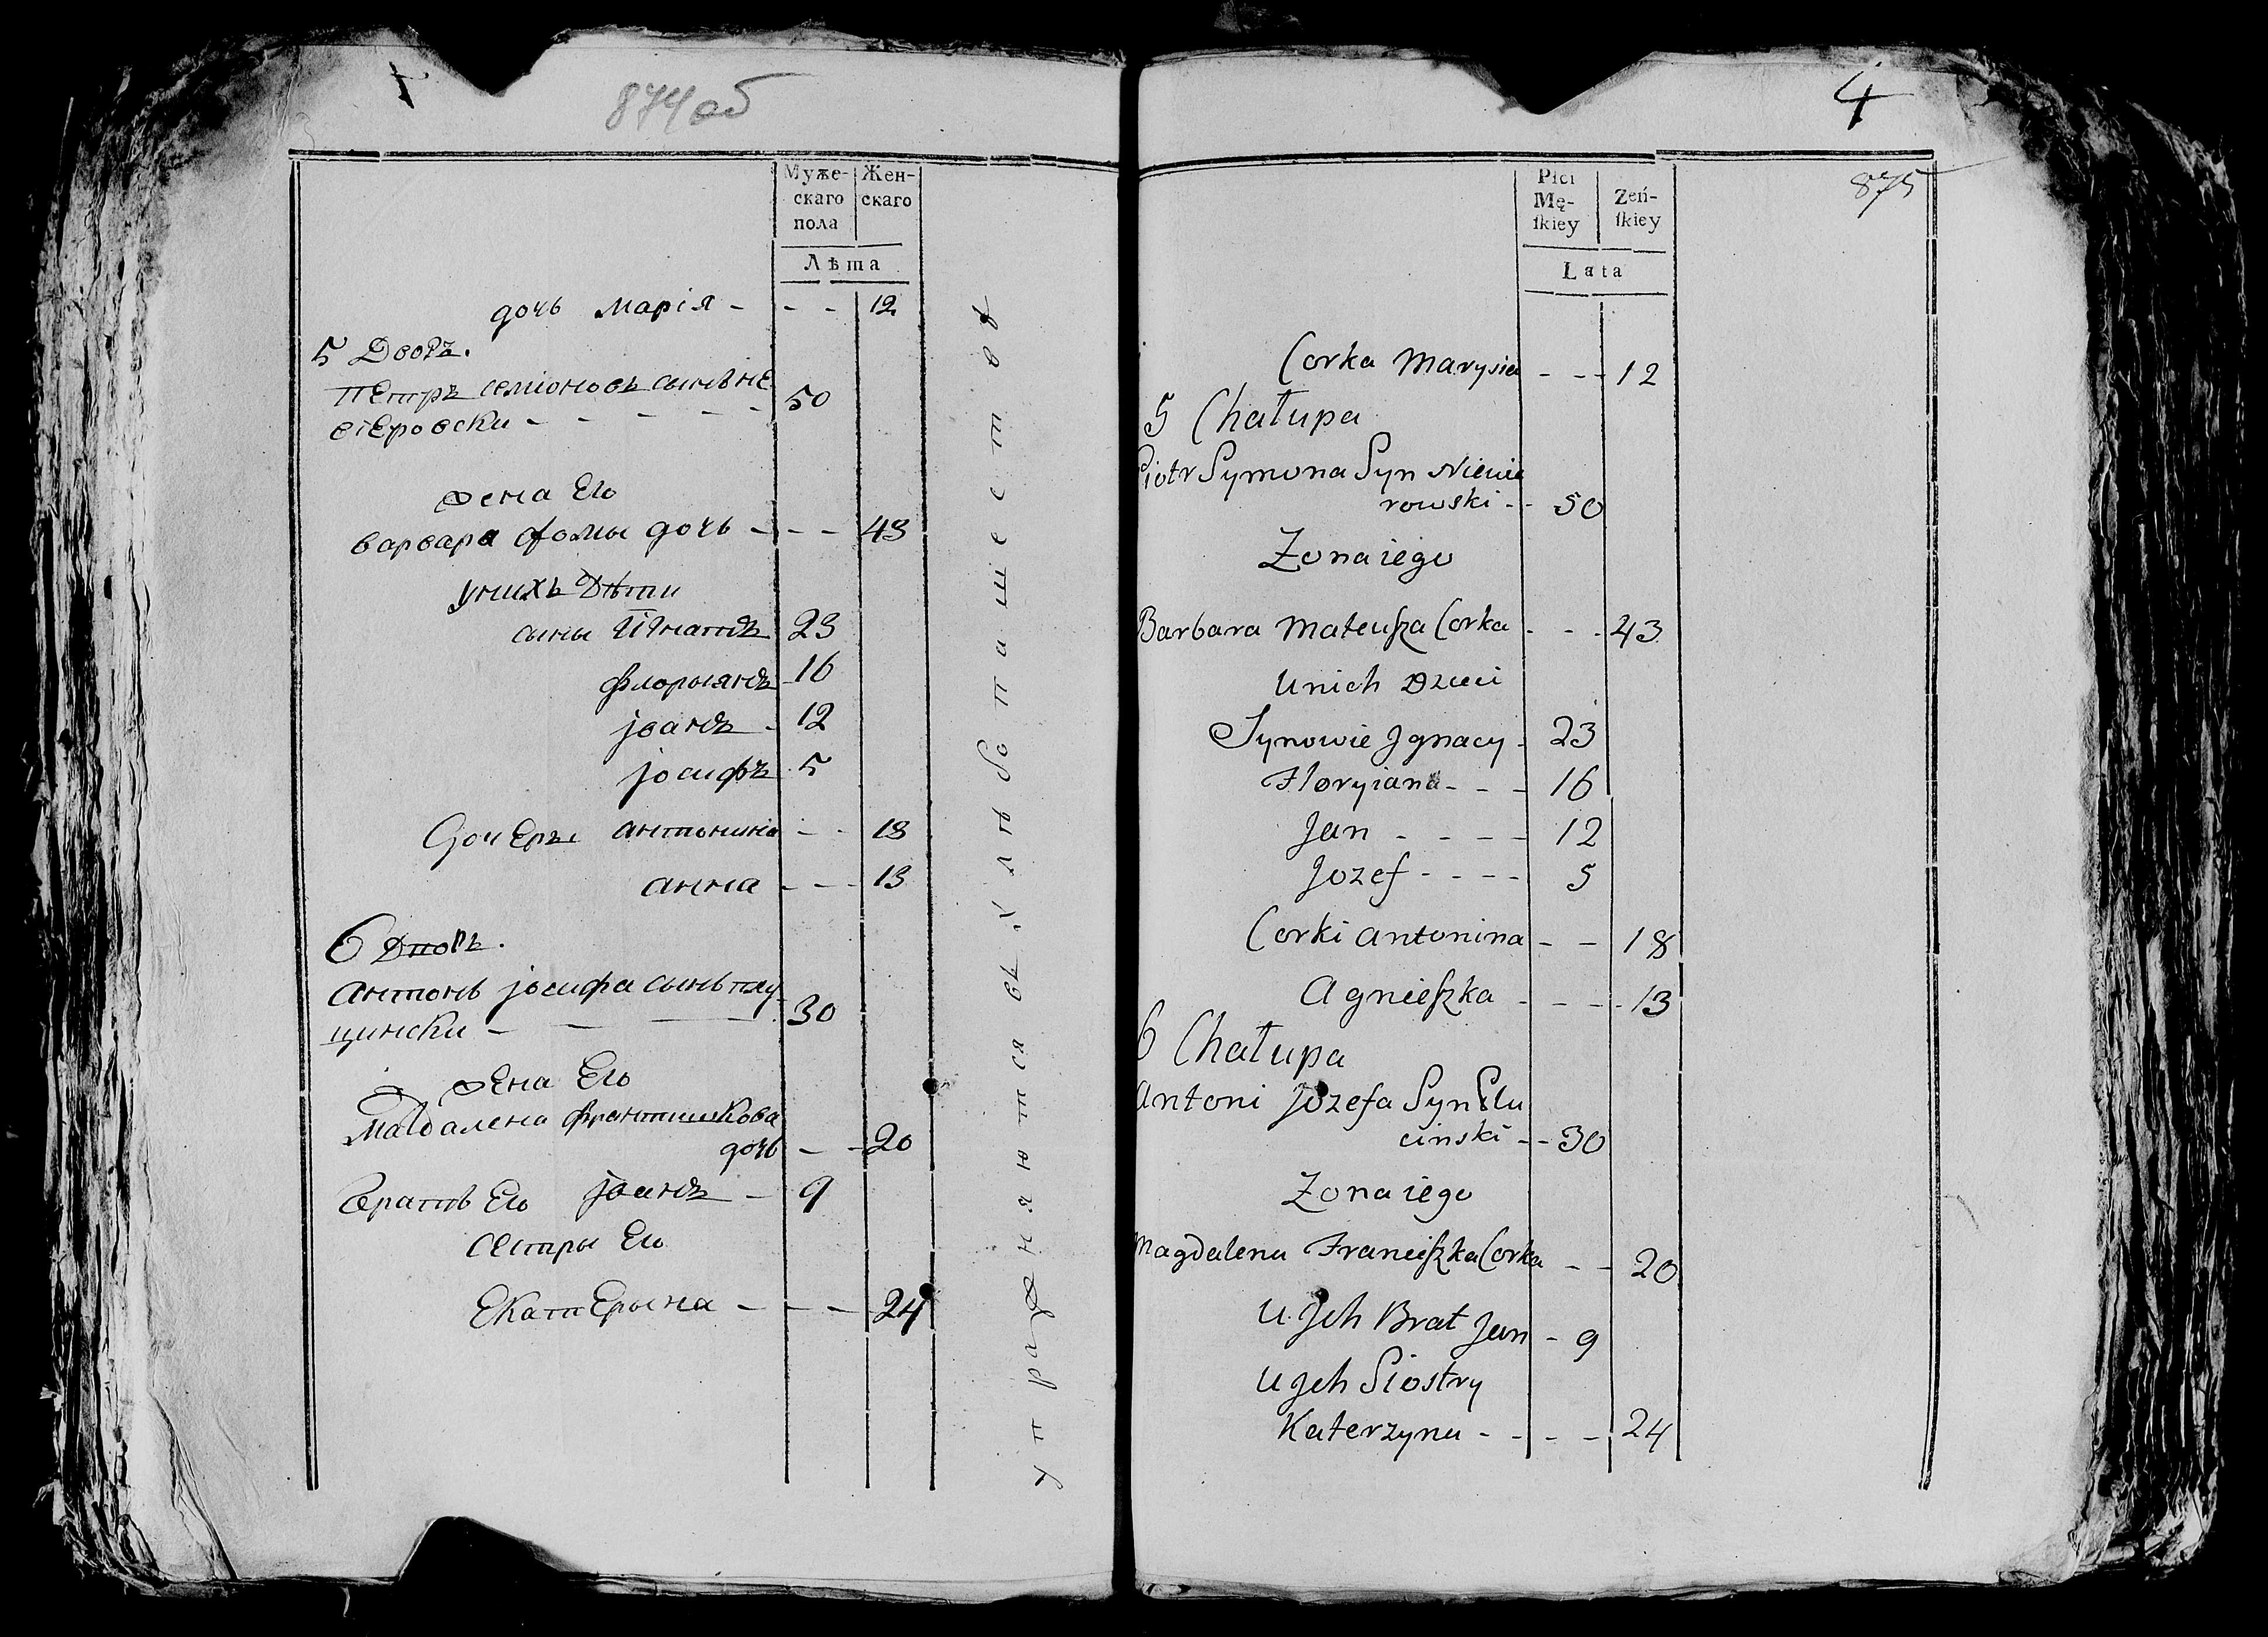 874 об
Муже-
скаго
пола
Жен-
скаго
Лѣта
дочь Марія - - - 12
5 Дворъ.
Петръ Семіоновъ сынъ Не
віеровски - - - - - 50
жена Его
варвара Фомы дочь - - - 43
у нихъ Дѣти
сыны Игнатъ 23
Флорыянъ - 16
јванъ - 12
јосифъ 5
Дочеръ антонина - - 18
анна - - - 13
6 Дворъ.
Антонъ јосифа сынъ плу
цински - - - 30
жена Его
Магдалена Франтишкова
дочь - - 20
братъ Его јванъ - 9
сестры Его
Екатерына - - - 24
упражняются въ хлѣбопашествѣ
4
875
Płci
Mę-
ſkiey
Żeń-
ſkiey
Lata
Corka Marysia - - - 12
5 Chałupa
Piotr Symona Syn Niewie
rowski - - 50
Zona iego
Barbara Mateuſza Corka - - - 43
U nich Dzieci
Synowie Jgnacy - 23
Floryian - - - 16
Jan - - - - 12
Jozef - - - - 5
Corki Antonina - - 18
Agnieſzka - - - - 13
6 Chałupa
Antoni Jozefa Syn Plu
cinski - - 30
Zona iego
Magdalena Franciſzka Corka - - 20
U Jch Brat Jan - 9
U Jch Siostry
Katerzyna - - - - 24